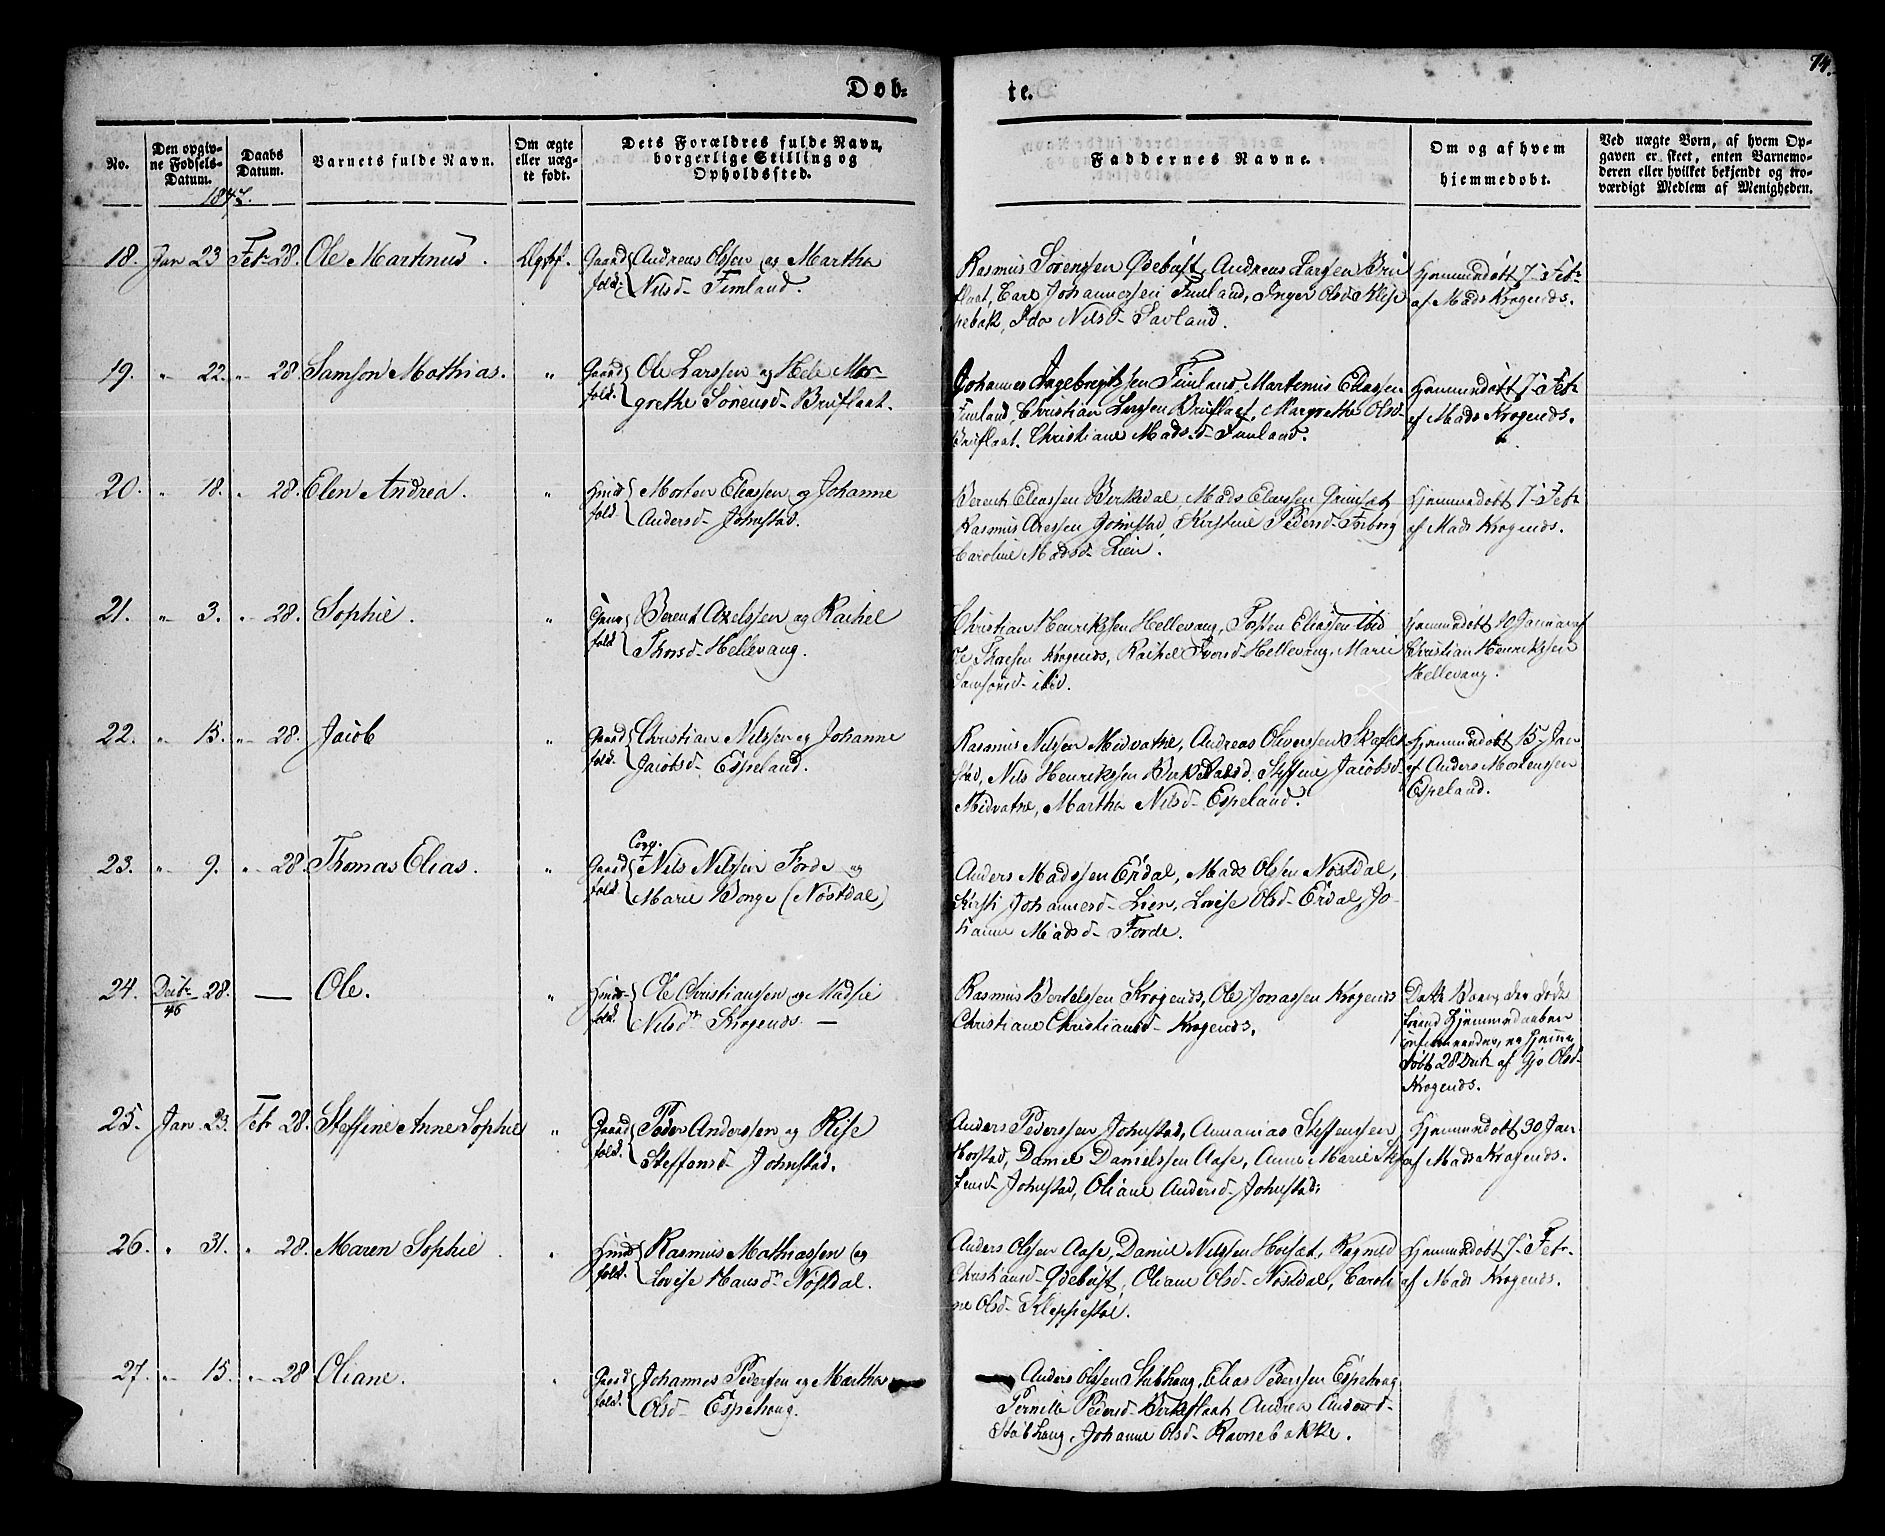 74.
Døb-
te.
No.
Den opgiv-
ne Fødsels-
Datum.
Daabs
Datum.
Barnets fulde Navn.
Om ægte
eller uæg-
te født.
Dets Forældres fulde Navn,
borgerlige Stilling og
Opholdssted.
Faddernes Navne.
Om og af hvem
hjemmedøbt.
Ved uægte Børn, af hvem Op-
gaven er skeet, enten Barnemo-
deren eller hvilket bekjendt og tro-
værdigt Medlem af Menigheden.
1847.
18. Jan 23 Febr 28. Ole Martinus.
Gaard fold. Andreas Olssen og Martha
Nilsd- Fimland.
Rasmus Sørenssen Ødebust, Andreas Larssen Bru
flaat, Carl Johannessen Fimland, Inger Olsd-
Ida Nilsd- Savland.
Hjemmedøbt 7- Febr
af Mads Krogenæs.
19. " 22. " 28. Samson Mathias. "
Gaard fold. Ole Larssen og Mar-
grethe Sørensd- Bruflaat.
Johannes Ingebrigtssen Fimland, Martinus Eliassen
Fimland, Christian Larssen Bruflaat, Margrethe Olsd-
Bruflaat. Christiane Madsd- Fimland.
Hjemmedøbt 7- Febr
af Mads Krogenæs.
20. " 18. " 28. Elen Andrea. "
fold. Morten Eliassen og Johanne
Andersd- Johnstad.
Berent Eliassen Birkedal Mads Eliassen
Rasmus Johnstad, Kirstine Pedersd-
Caroline Madsd- Lien.
Hjemmedøbt 7- Febr
af Mads Krogenæs.
21. " 3. " 28. Sophie. "
fold Berent Axelssen og Rachel
Thorsd- Hellevang.
Christian Henrikssen Hellevang, Eliassen ibid
Ole Krogenæs, Rachel Hellevang, Marie
Samsonsd- ibid.
Hjemmedøbt 10 Januar af
Christian Henrikssen
Hellevang.
22. " 15. " 28. Jacob "
Gaard fold. Christian Nilssen og Johanne
Jacobsd- Espeland.
Rasmus Nilssen Midvatne, Andreas Oliverssen
stad, Nils Henrikssen Steffine Jacobsd-
Midvatne, Martha Nilsd- Espeland.
Hjemmedøbt 15 Jan
af Anders Mortenssen
Espeland.
23. " 9. " 28. Thomas Elias. "
Gaard fold. Corp. Nils Nilssen Førde og
Marie Bonge (Nøstdal)
Anders Madssen Erdal, Mads Olssen Nøstdal,
Kirsti Johannesd- Lien, Lovise Olsd- Erdal, Jo-
hanne Madsd- Førde.
24. Decbr 28. — Ole. "
46
fold. Ole Christianssen og Madsie
Nilsdr Krogenæs. —
Rasmus Bertelssen Krogenæs, Ole Jonassen Krogenæs
Christiane Christiansd- Krogenæs.
Dette Barn den døde
førend Hjemmedaaben
døbt 28 Decbr af Olsd-
Krogenæs.
25. Jan 23. Febr 28. Steffine Anne Sophie "
Gaard fold. Peder Anderssen og Rise
Steffensd- Johnstad.
Anders Pederssen Johnstad, Annanias Steffenssen
Horstad, Daniel Danielssen Aase, Anne Marie Stef
fensd- Johnstad, Oliane Andersd- Johnstad.
Hjemmedøbt 30 Jan
af Mads Krogenæs.
26. " 31. " 28. Maren Sophie "
fold. Rasmus Mathiassen og
Lovise Hansdr Nøstdal.
Anders Olssen Aase, Daniel Nilssen Ragnild
Christiansd- Ødebust, Oliane Olsd- Nøstdal, Caroli
ne Olsd- Kleppestøl.
Hjemmedøbt 7- Febr.
af Mads Krogenæs.
27. " 15. " 28 Oliane. "
Gaard fold. Johannes Pederssen og Martha
Olsd- Espehoug.
Anders Olssen Stubhoug, Elias Pederssen Espehoug
Pernille Pedersd- Andrea Andersd-
Stubhoug, Johanne Olsd- Ravnebakke.